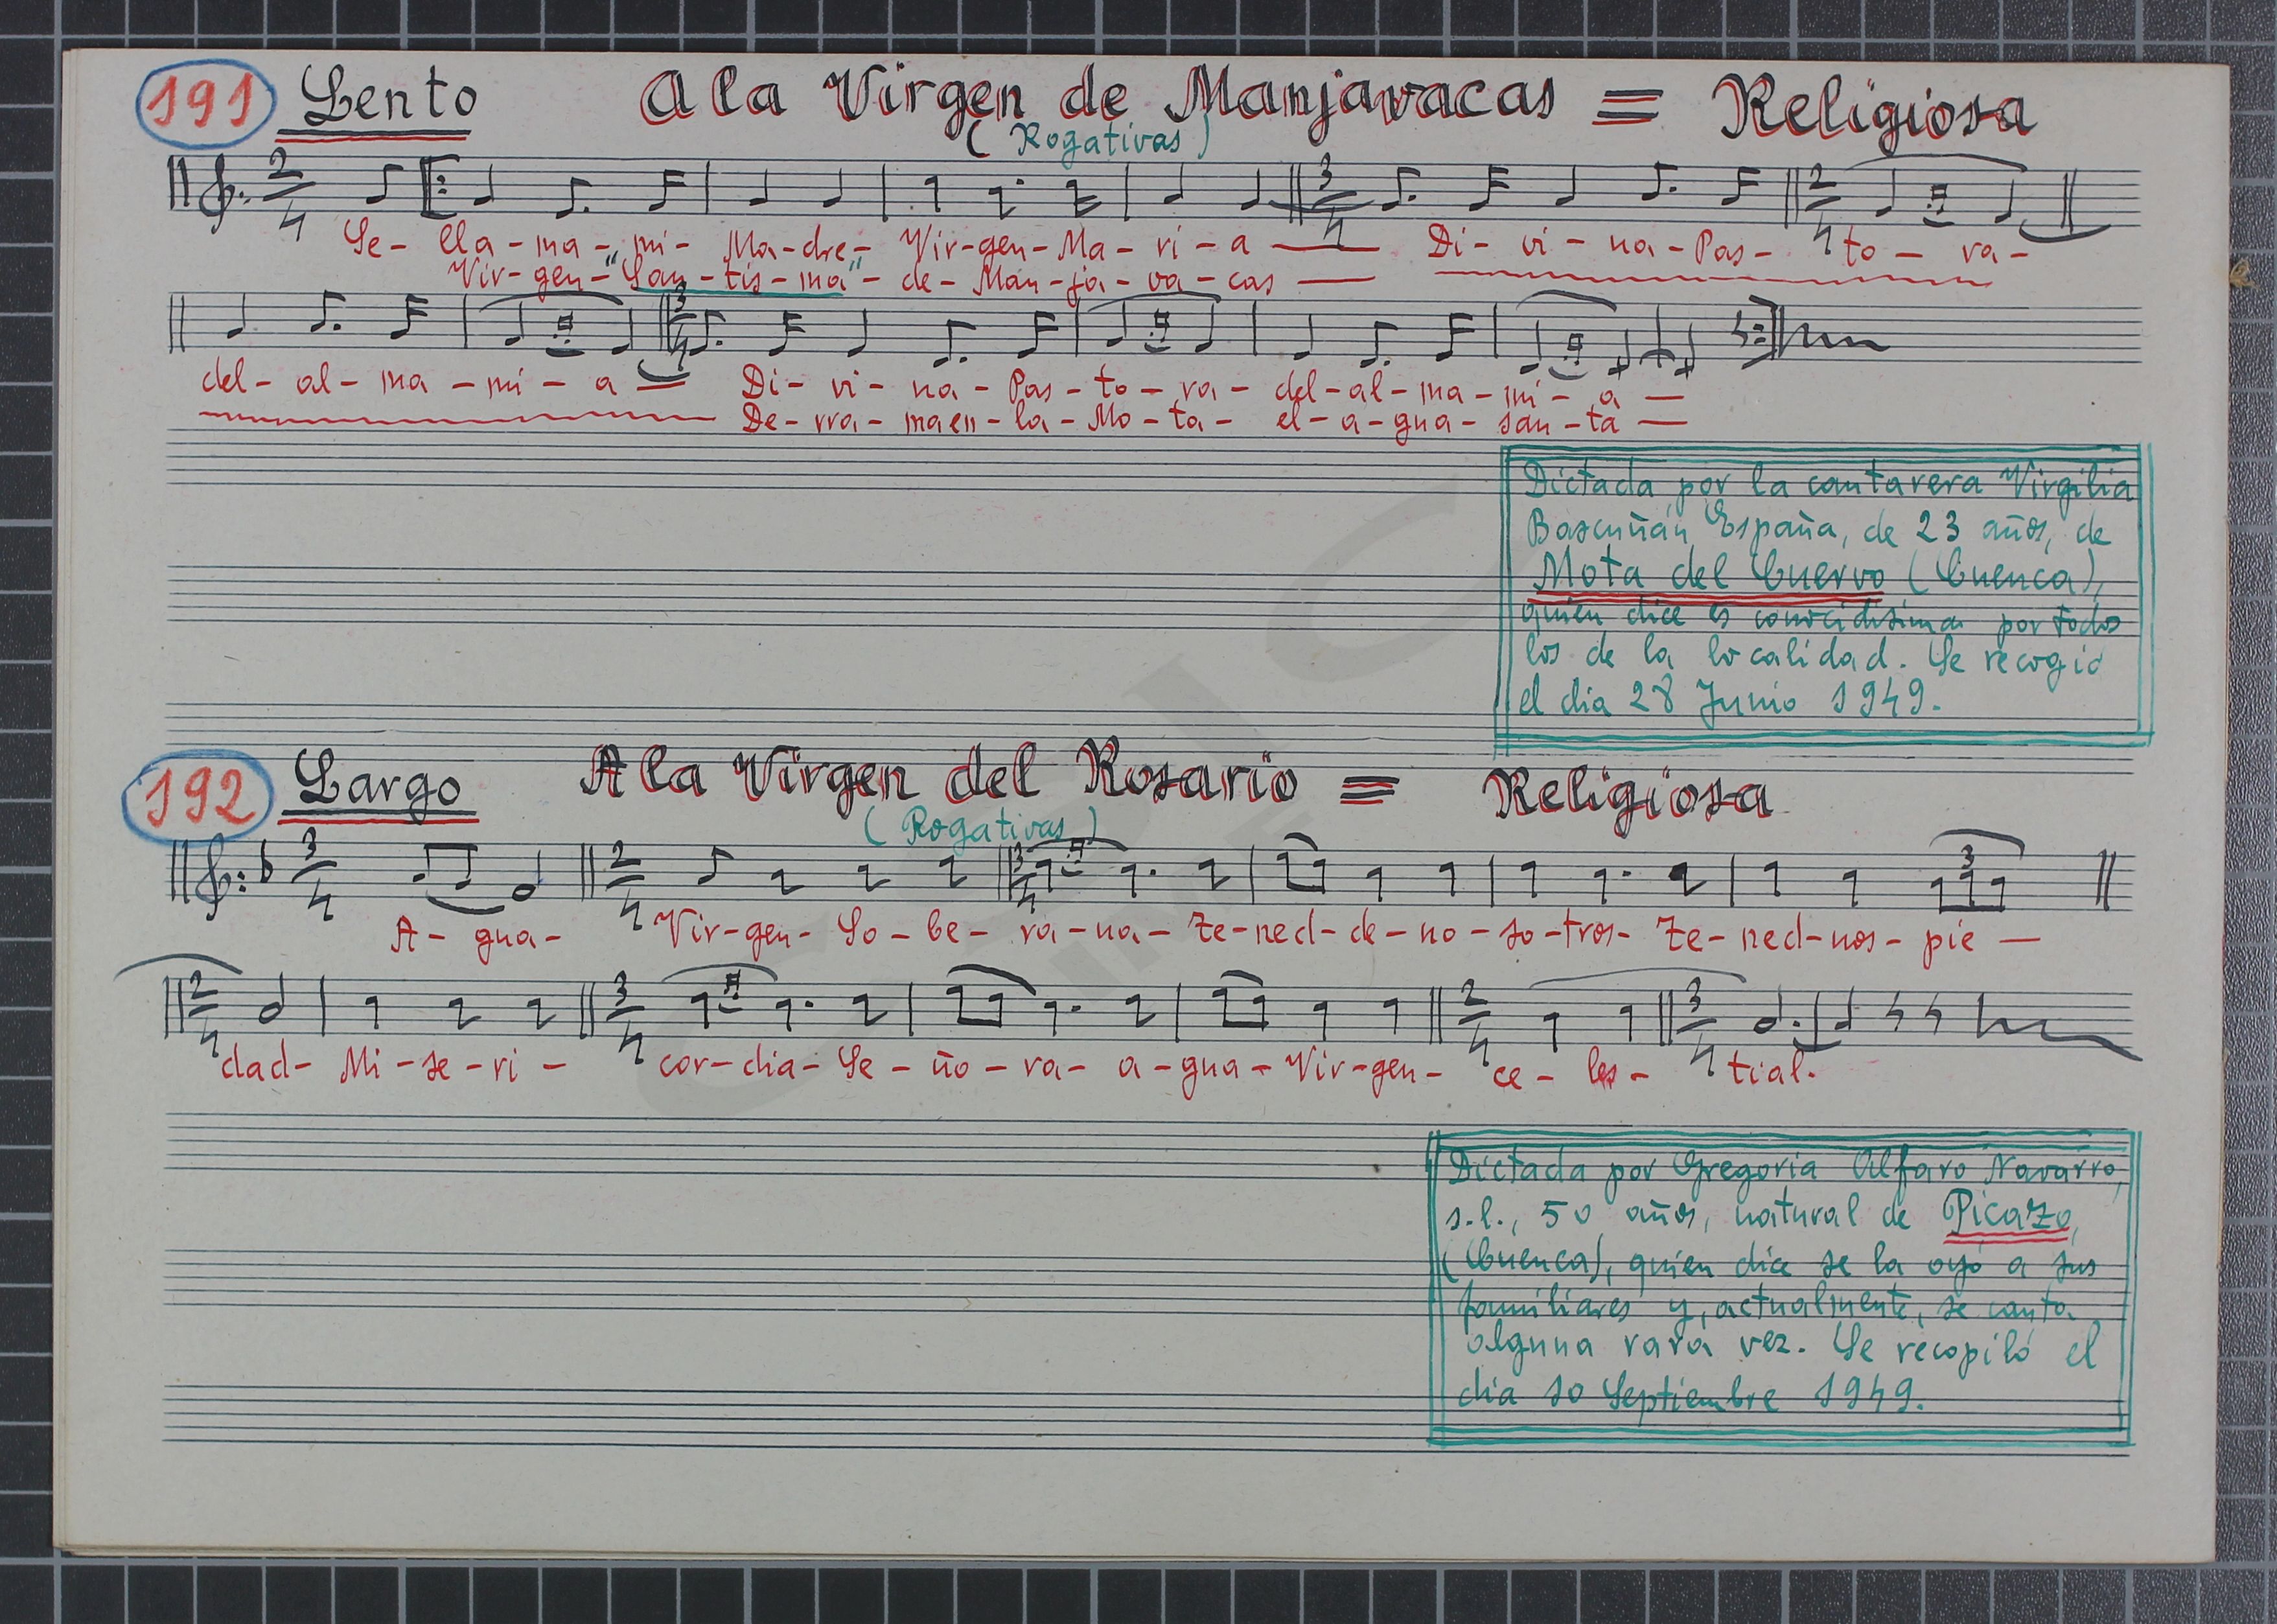 191 Lento A la Virgen de Manjavacas = Religiosa
(Rogativas)
2/4 3/4 2/4
Se- lla - ma - mi - Ma-dre- Vir-gen- Ma - ri - a — Di - vi - na - Pas - to - ra -
Vir- gen- "San - tis - ma" - de - Man - ja - va - cas —
3/4
del - al - ma - mi - a — Di - vi - na - Pas - to - ra - del - al - ma - mi - a —
De - rra - maen - la - Mo - ta - el - a - gua - san - ta —
Dictada por la cantarera Virgilia
Bascuñán España, de 23 años, de
Mota del Cuervo (Cuenca),
quien dice es conocidisima por todos
los de la localidad. Se recogió
el dia 28 Junio 1949.
192 Largo A la Virgen del Rosario = Religiosa
(Rogativas)
3/4 2/4 3/4 3
A - gua - Vir-gen- So - be - ra - na - Te - ned - de - no - so - tros - Te - ned - nos - pie —
2/4 3/4 2/4 3/4
dad - Mi - se - ri - cor - dia - Se - ño - ra - a - gua - Vir - gen - ce - les - tial.
Dictada por Gregoria Alfaro Navarro,
s.l., 50 años, natural de Picazo,
(Cuenca), quien dice se la oyó a sus
familiares y, actualmente, se canta
alguna rara vez. Se recopiló el
dia 10 Septiembre 1949.
CSIC